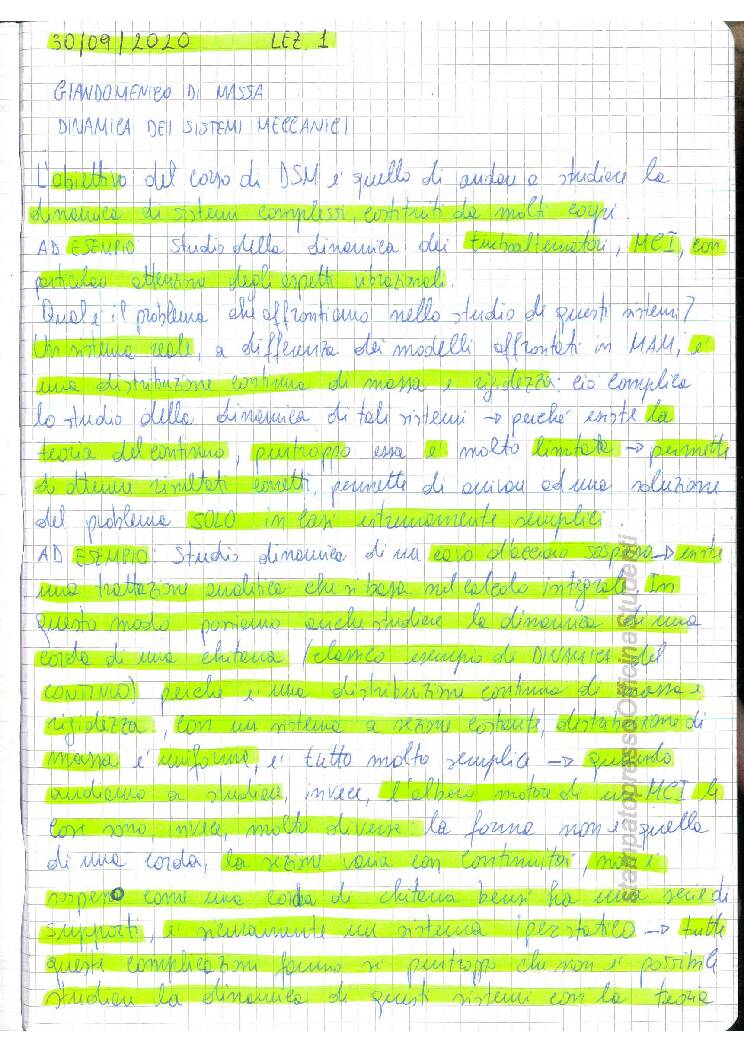 30/09/2020 LEZ. 1
GIANDOMENICO DI MASSA
DINAMICA DEI SISTEMI MECCANICI
L'obiettivo del corso di DSM è quello di andare a studiare la
dinamica di sistemi complessi, costituiti da molti corpi.
AD ESEMPIO: Studio della dinamica dei turboalternatori, MCI, con
particolare attenzione degli aspetti vibrazionali.
Qual è il problema che affrontiamo nello studio di questi sistemi?
Un sistema reale, a differenza dei modelli affrontati in MAM, è
una distribuzione continua di massa e rigidezza: ciò complica
lo studio della dinamica di tali sistemi → perché esiste la
teoria del continuo, purtroppo essa è molto limitata → permette
di ottenere risultati corretti, permette di arrivare ad una soluzione
del problema SOLO in casi estremamente semplici.
AD ESEMPIO: Studio dinamica di un cavo d'acciaio sospeso → esiste
una trattazione analitica che si basa sul calcolo integrale. In
questo modo possiamo anche studiare la dinamica di una
corda di una chitarra (classico esempio di DINAMICA del
CONTINUO) perché è una distribuzione continua di massa e
rigidezza, con un sistema a sezione costante, distribuzione di
massa è uniforme, è tutto molto semplice → quando
andiamo a studiare, invece, l'albero motore di un MCI le
cose sono, invece, molto diverse: la forma non è quella
di una corda, la sezione varia con continuità, non è
sospeso come una corda di chitarra bensì ha una serie di
supporti, è sicuramente un sistema iperstatico → tutte
queste complicazioni fanno sì purtroppo che non è possibile
studiare la dinamica di questi sistemi con la teoria
stampatopressoOfficinaStudenti